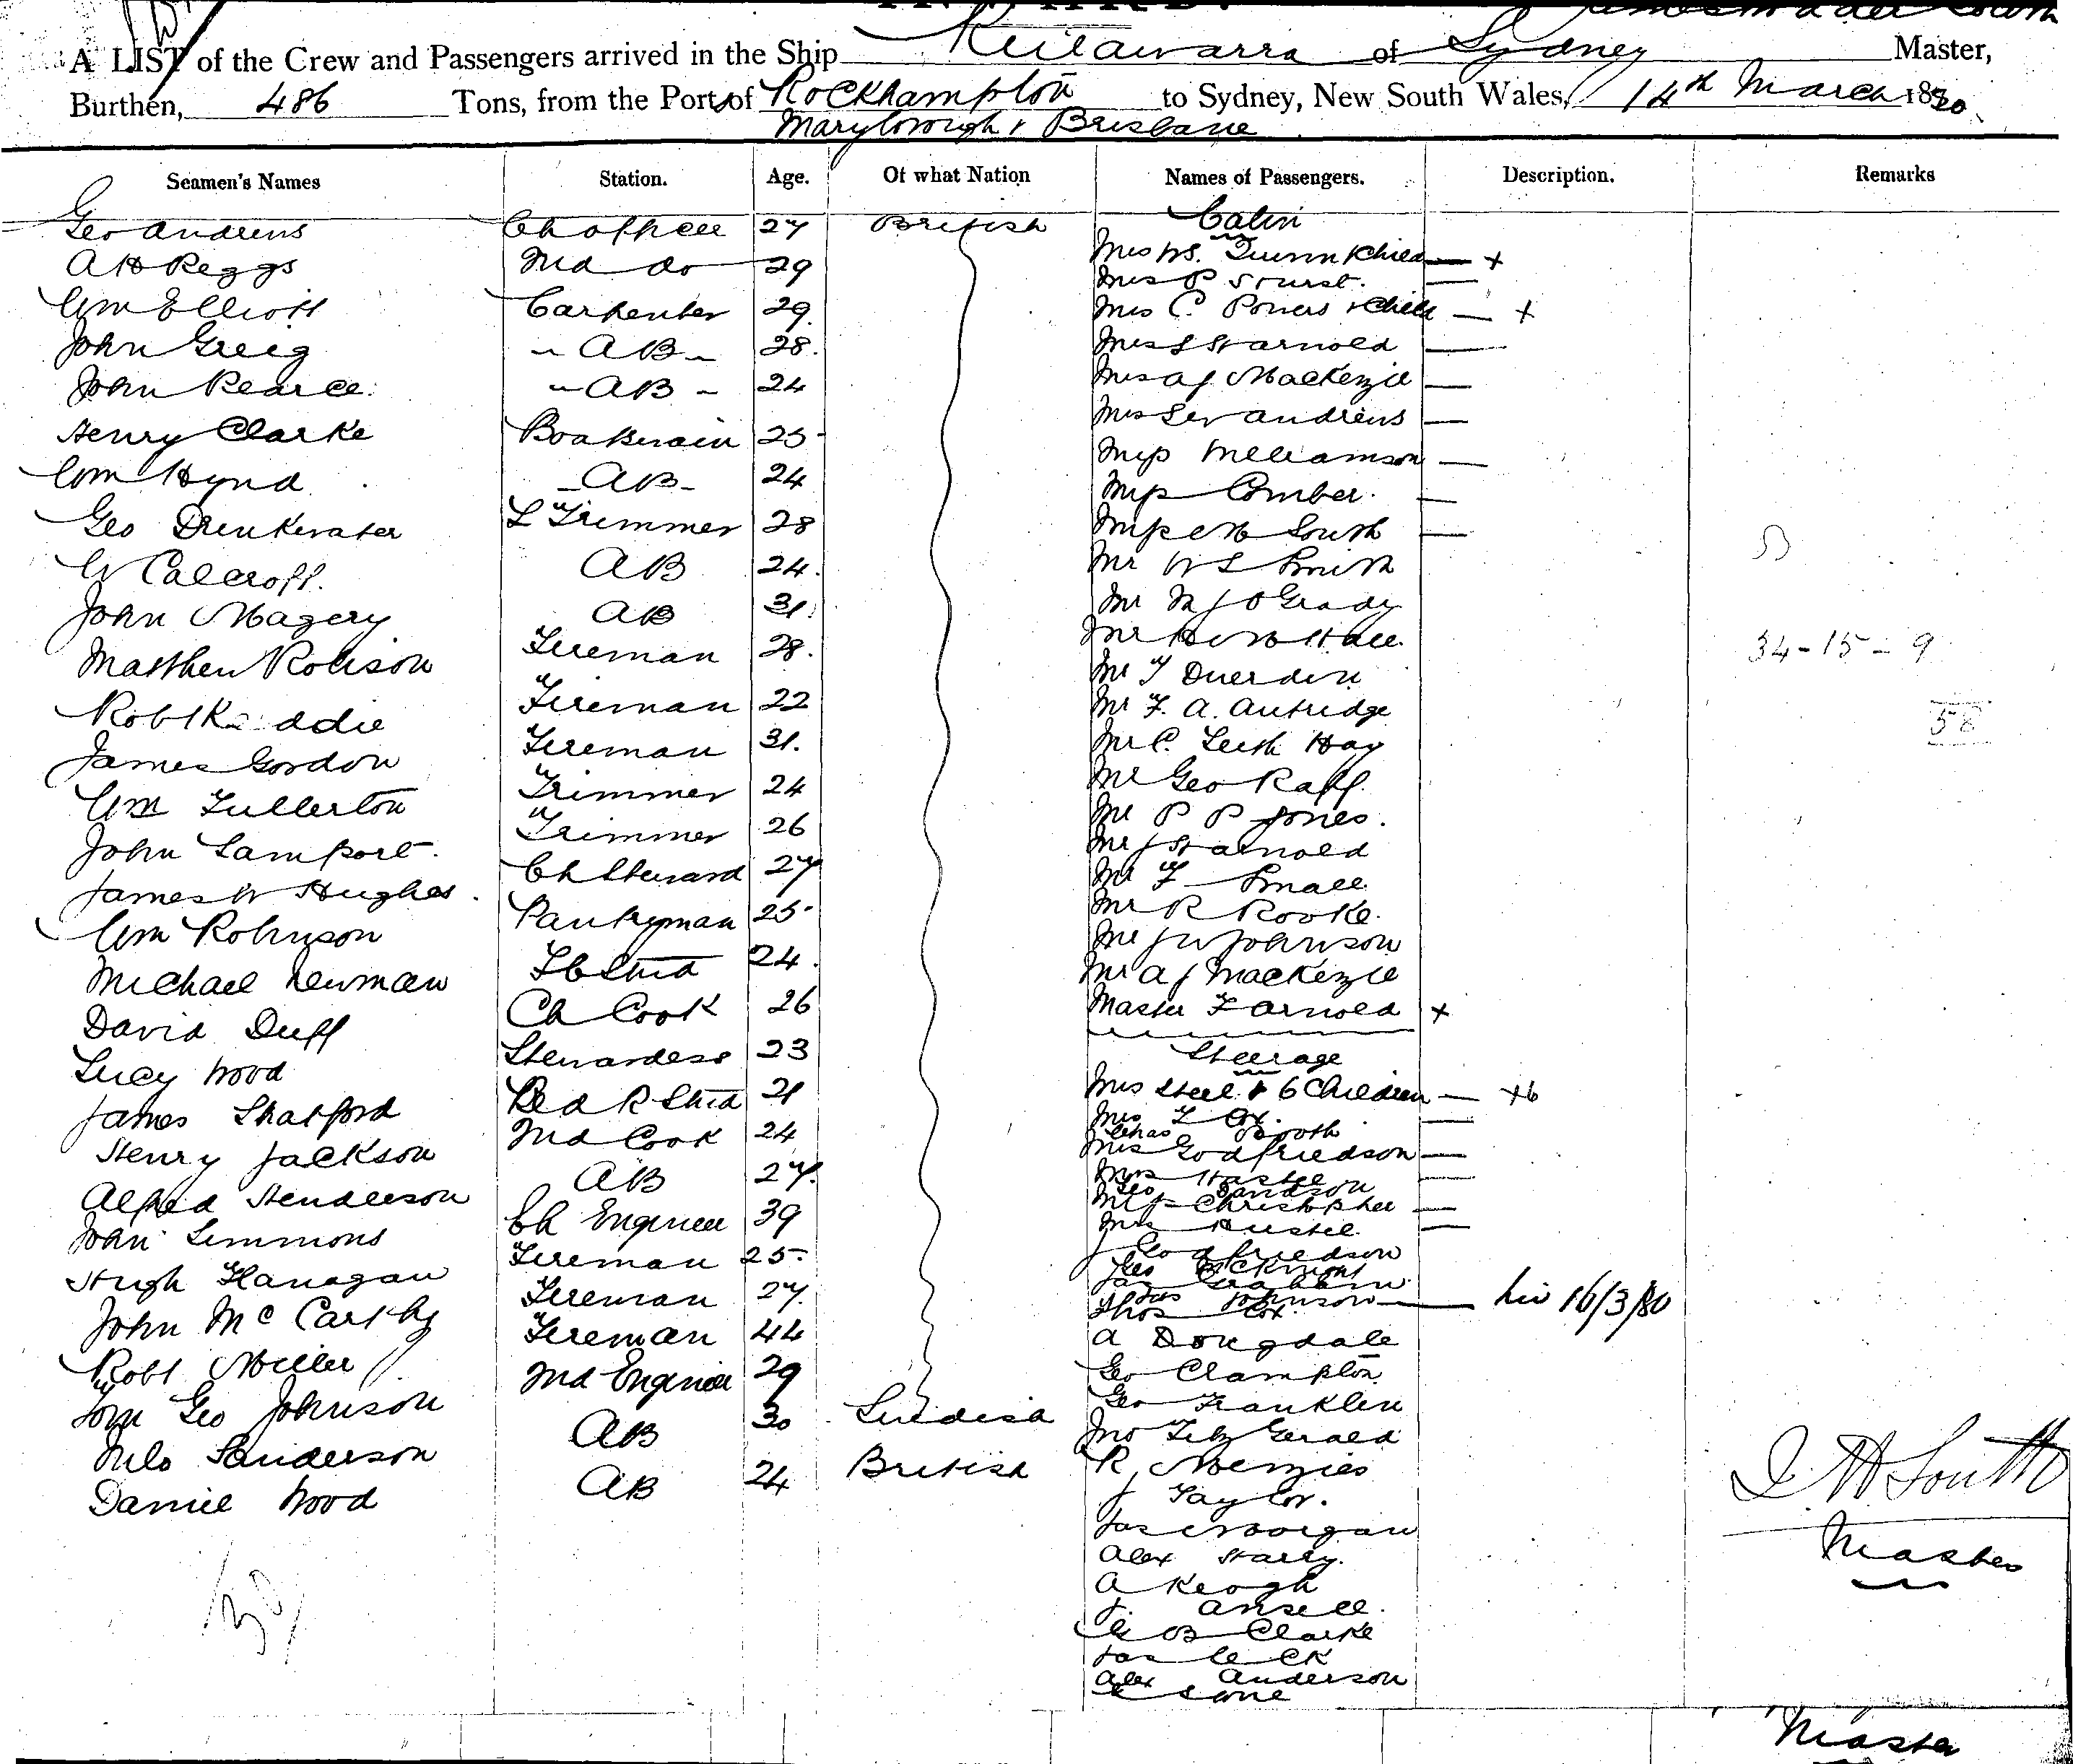 A LIST of the Crew and Passengers arrived in the Ship Keilawarra of Sydney Master,
Burthen, 486 Tons, from the Ports of Rockhampton to Sydney, New South Wales, 14th March 1880
Maryborough & Brisbane
Seamen's Names Station. Age. Of what Nation Names of Passengers. Description. Remarks
Geo Andrews Ch Officer 27 British
A H Peggs 2nd do 29
Wm Elliott Carpenter 29
John Greig - AB - 28
John Pearce - AB - 24
Henry Clarke Boatswain 25
Wm Hynd - AB - 24
Geo Drinkwater L Trimmer 28
W Calcroft AB 24
John Magery AB 31
Matthew Robison Fireman 28
Robt Fireman 22
James Gordon Fireman 31
Wm Fullerton Trimmer 24
John Lamport Trimmer 26
James W Hughes Ch Steward 27
Wm Robinson Pantryman 25
Michael Newman F C Stwd 24
David Duff Ch Cook 26
Lucy Wood Stewardess 23
James Shatford R Stwd 21
Henry Jackson 2nd Cook 24
Alfred Henderson AB 27
John Simmons Ch Engineer 39
Hugh Flanagan Fireman 25
John McCarthy Fireman 27
Robt Miller Fireman 44
Geo Johnson 2nd Engineer 29
Nils Sanderson AB 30 Swedish
Daniel Wood AB 24 British
Cabin
Mrs W S. Quinn & Child — +
Mrs P —
Mrs C. Powers & Child — +
Mrs S H Arnold —
Mrs A J Mackenzie —
Mrs Geo Andrews —
Miss Williamson —
Miss Comber —
Miss E M South —
Mr W S Smith
Mr M J O Grady
Mr Hall
Mr T Duerdin
Mr F. A. Autridge
Mr C. Leith Hay
Mr Geo Raff
Mr P P Jones
Mr J H Arnold
Mr F Small
Mr R Rooke
Mr J W Johnson
Mr A J Mackenzie
Master F Arnold +
Steerage
Mrs Steel & 6 Children — +6
Mrs T Cox —
Chas Booth
Mrs Godfriedson —
Mrs Hastie —
Geo Davidson
Christopher —
Mrs —
J Godfriedson
Geo
Jas Graham
Jas Johnson — 16/3/80
Thos Cox
A Dougdale
Geo Clampton
Geo Franklin
Jno Fitz Gerald
R Menzies
J Taylor
Jas Morgan
Alex Harry
A Keogh
J. Ansell
G B Clarke
Jas
Alex Anderson
34-15-9
58
J H South
Master
30
Master